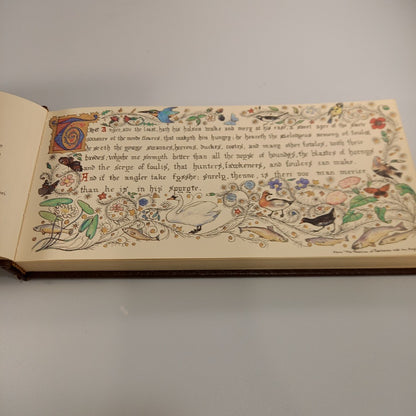 The Angler, atte the leest, hath his holsom walke and mery at his ease, a swete ayer of the swete
savoure of the mede floures, that makyth him hungry; he hereth the melodyous armony of foules,
he seeth the yonge swannes, heerons, duckes, cootes, and many other foules, with there
brodes; whyche me semyth better than all the noyse of houndes, the blastes of hornys
and the scrye of foulis, that hunters, fawkeners, and foulers can make.
And if the angler take fysshe: surely, thenne, is there noo man merier
than he is in his spyryte.